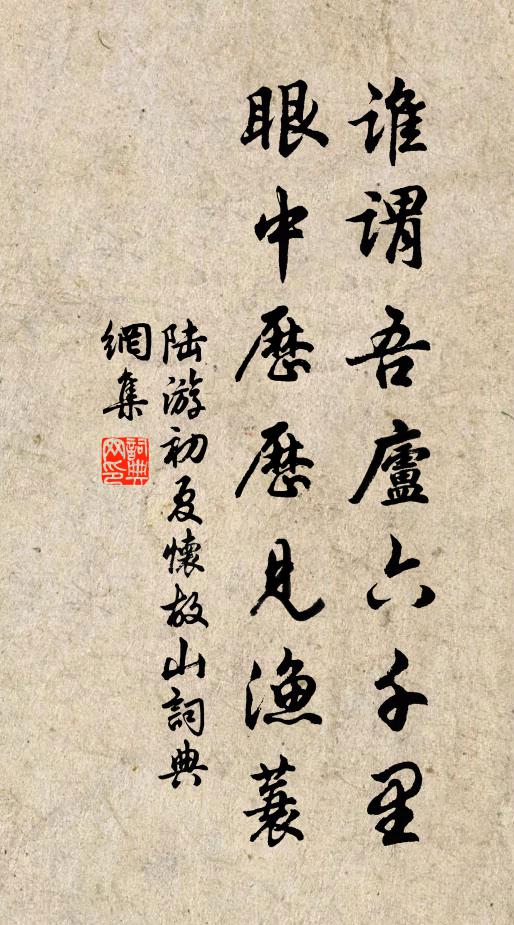 誰謂吾廬六千里
眼中歷歷見漁蓑
陸游初夏懷故山詞典
網集
詞典
网印